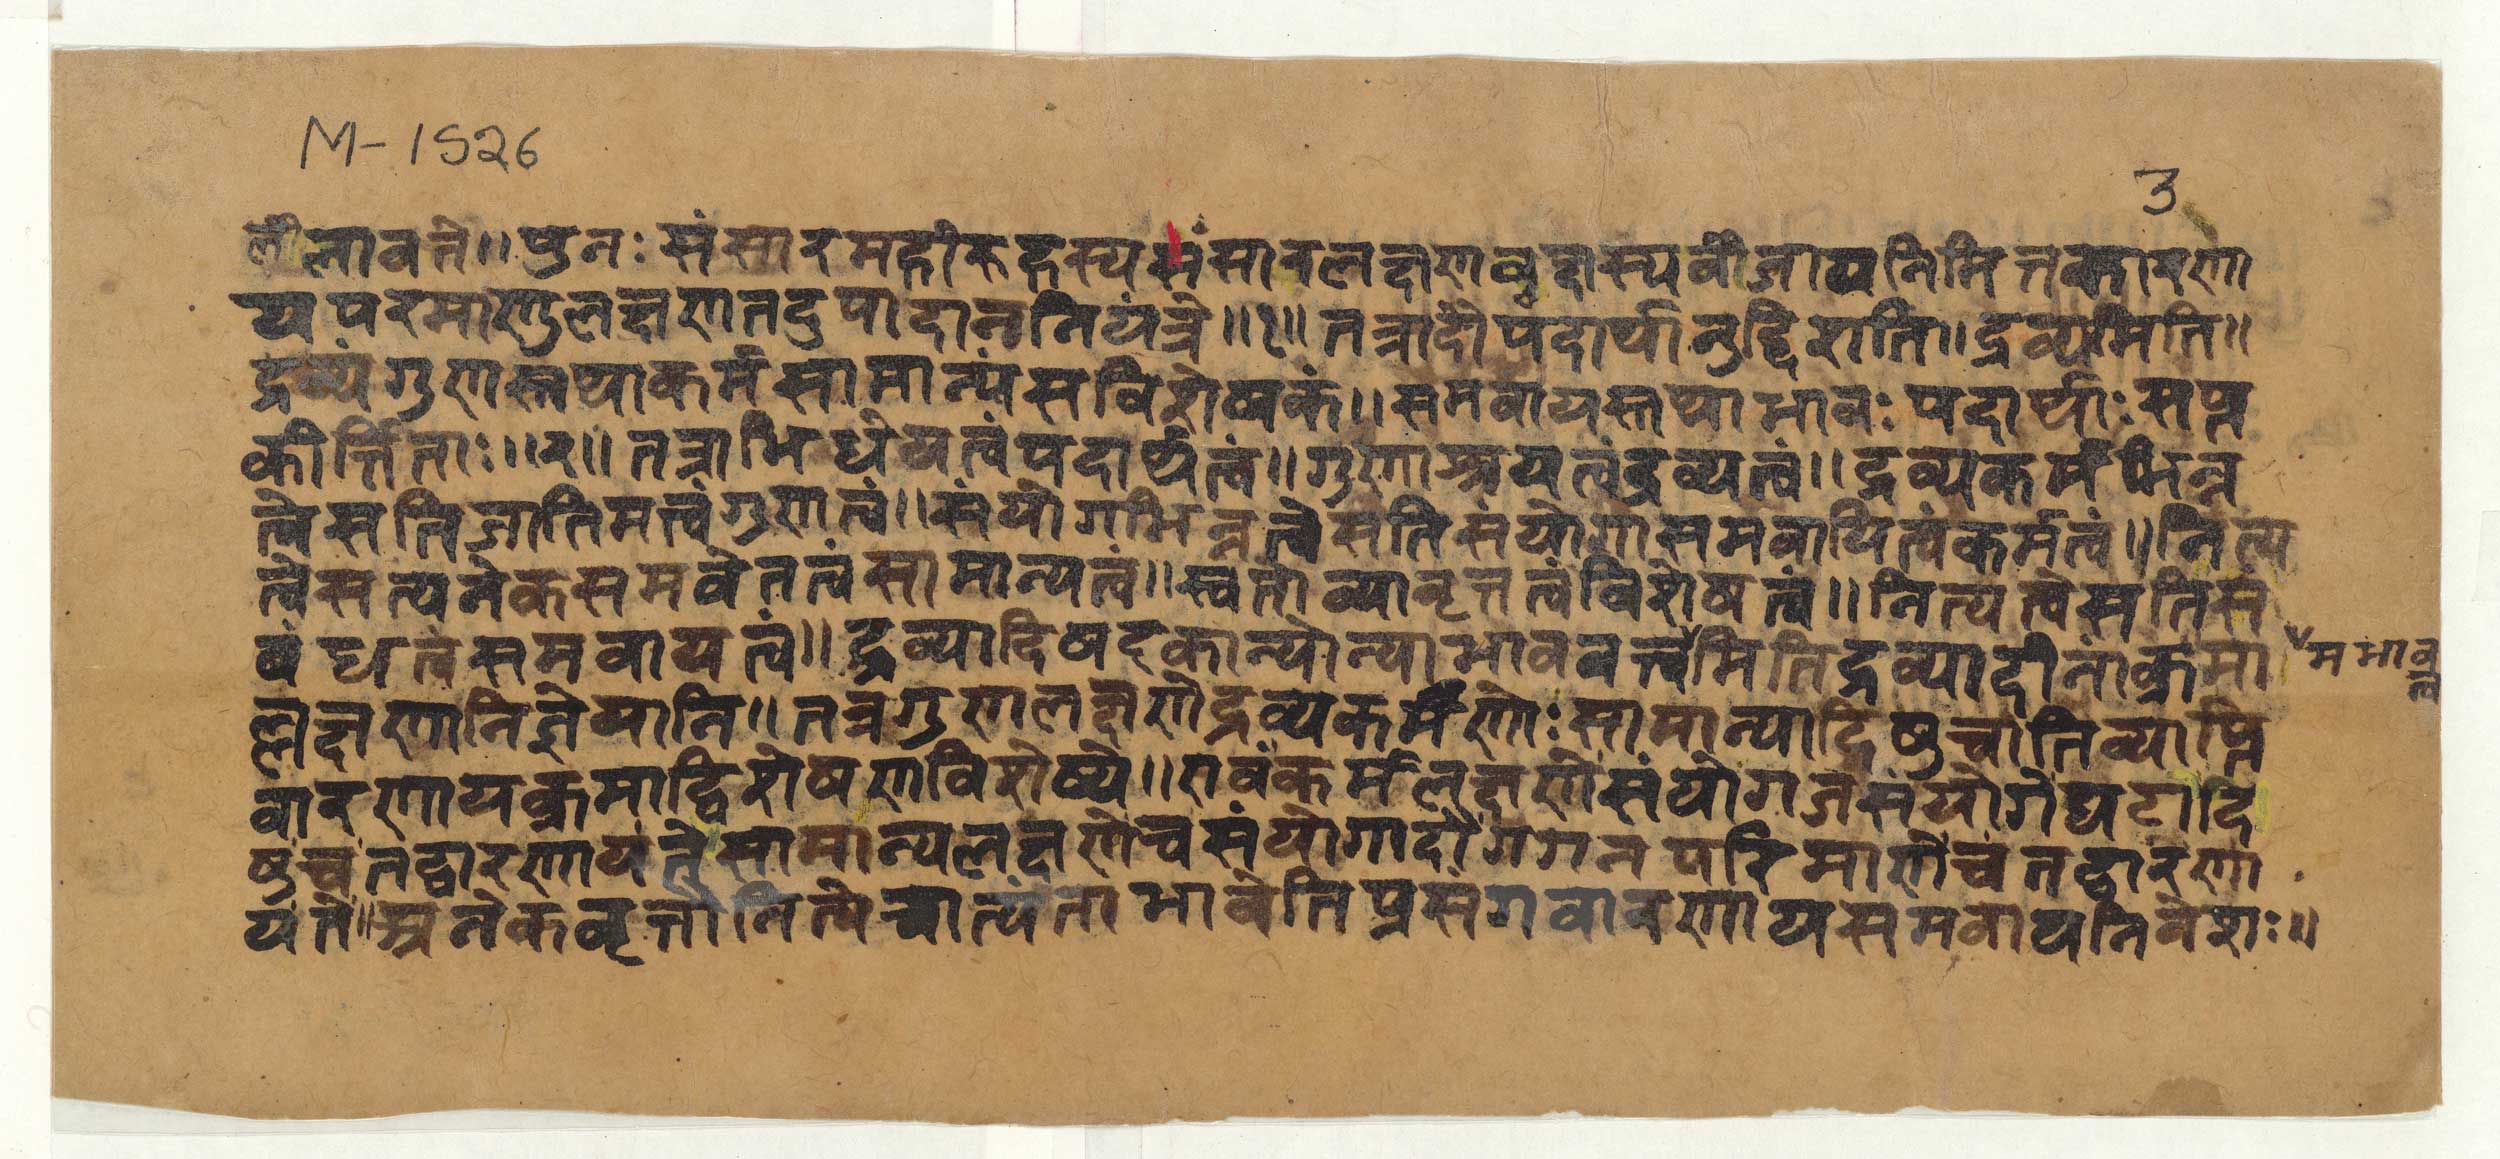 M-1526
3
लीलावते॥पुनःसंसारमहीरुहस्यसंसारलक्षणवृक्षस्यबीजायनिमित्तकारणा
यपरमाणुलक्षणतदुपादाननियंत्रे॥१॥तत्रादौपदार्थानुद्दिशति॥द्रव्यमिति॥
द्रव्यंगुणास्तथाकर्मसामान्यंसविशेषकं॥समवायस्तथाभावःपदार्थाःसप्त
कीर्त्तिताः॥२॥तत्राभिधेयत्वंपदार्थत्वं॥गुणाश्रयत्वंद्रव्यत्वं॥द्रव्यकर्मभिन्न
त्वेसतिजातिमत्वंगुणत्वं॥संयोगभिन्नत्वेसतिसंयोगासमवायित्वंकर्मत्वं॥नित्य
त्वेसत्यनेकसमवेतत्वंसामान्यत्वं॥स्वतोव्यावृत्तत्वंविशेषत्वं॥नित्यत्वेसतिसं
बंधत्वंसमवायत्वं॥द्रव्यादिषट्कान्योन्याभाववत्त्वमितिद्रव्यादीनांक्रमा
मभावत्व
ल्लक्षणानिज्ञेयानि॥तत्रगुणलक्षणेद्रव्यकर्मणोःसामान्यादिषुचातिव्याप्ति
वारणायक्रमाद्विशेषणविशेष्ये॥एवंकर्मलक्षणेसंयोगजसंयोगेघटादि
षुचतद्वारणायतेसामान्यलक्षणेचसंयोगादौगगनपरिमाणेचतद्वारणा
यते॥अनेकवृत्तौनित्येचात्यंताभावेतिप्रसंगवारणायसमवायनिवेशः॥